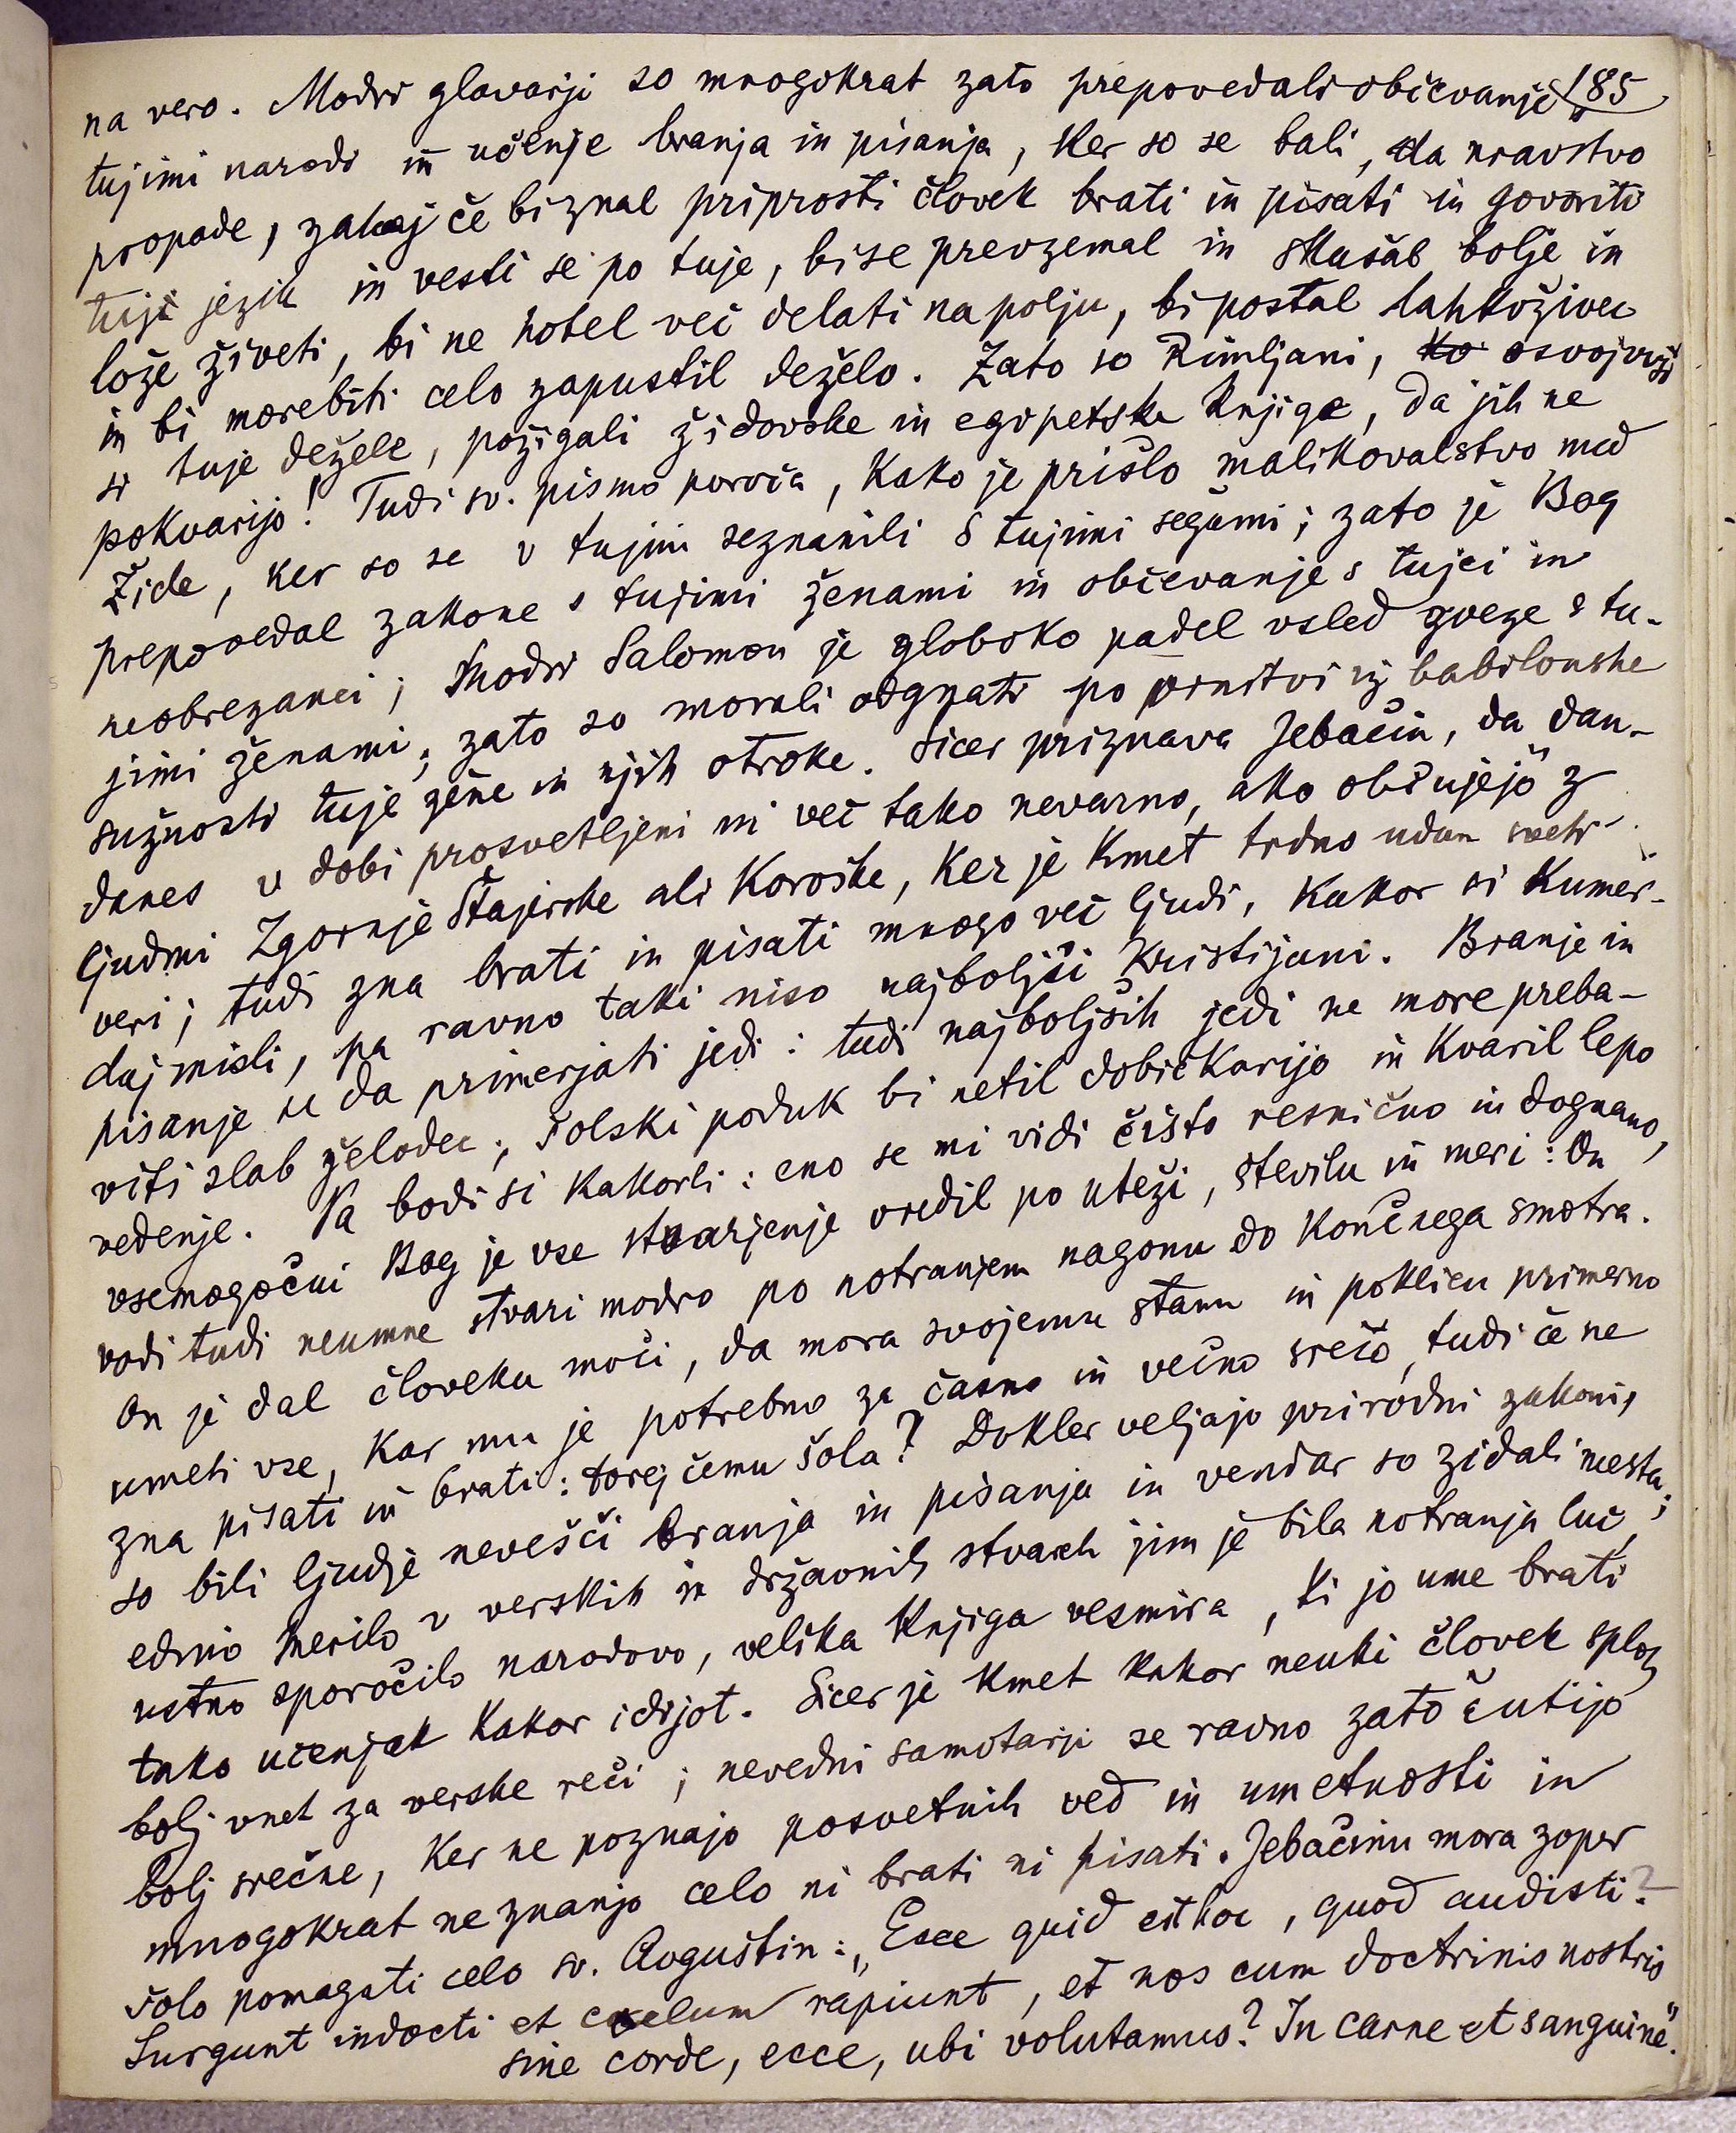 na vero. Modri glavarji so mnogokrat zato prepovedali občevanje s 185
tujimi narodi in učenje branja in pisanja, ker so se bali, da nravstvo
propade, zakaj če bi znal priprosti človek brati in pisati in govoriti
tuji jezik in vesti se po tuje, bi se prevzemal in skušal bolje in
lože živeti, bi ne hotel več delati na polju, bi postal lahkoživec
in bi morebiti celo zapustil deželo. Zato so Rimljani, ko osvojivši
si tuje dežele, požigali židovske in egipetske knjige, da jih ne
pokvarijo! Tudi sv. pismo poroča, kako je prišlo malikovalstvo med
Žide, ker so se v tujini seznanili s tujimi šegami; zato je Bog
prepovedal zakone s tujimi ženami in občevanje s tujci in
neobrezanci; Modri Salomon je globoko padel vsled zveze s tu-
jimi ženami; zato so morali odgnati po vrnitvi iz babilonske
sužnosti tuje žene in njih otroke. Sicer priznava Jebačin, da dan-
danes v dobi prosvetljeni ni več tako nevarno, ako občujejo z
ljudmi Zgornje Štajerske ali Koroške, ker je kmet trdno udan sveti
veri; tudi zna brati in pisati mnogo več ljudi, kakor si kumer-
daj misli, pa ravno taki niso najboljši kristijani. Branje in
pisanje se da primerjati jedi: tudi najboljših jedi ne more preba-
viti slab želodec; šolski poduk bi netil dobičkarijo in kvaril lepo
vedenje. Pa bodi si kakorli: eno se mi vidi čisto resnično in dognano,
vsemogočni Bog je vse stvarjenje vredil po uteži, številu in meri: On
vodi tudi neumne stvari modro po notranjem nagonu do končnega smotra.
On je dal človeku moči, da mora svojemu stanu in poklicu primerno
umeti vse, kar mu je potrebno za časno in večno srečo, tudi če ne
zna pisati in brati: torej čemu šola? Dokler veljajo prirodni zakoni,
so bili ljudje nevešči branja in pisanja in vendar so zidali mesta;
edino merilo v verskih in državnih stvareh jim je bila notranja luč,
ustno sporočilo narodovo, velika knjiga vesmira, ki jo ume brati
tako učenjak kakor idijot. Sicer je kmet kakor neuki človek sploh
bolj vnet za verske reči; nevedni samotarji se ravno zato čutijo
bolj srečne, ker ne poznajo posvetnih ved in umetnosti in
mnogokrat ne znanjo celo ni brati ni pisati. Jebačinu mora zoper
šolo pomagati celo sv. Avguštin: „Ecce quid est hoc, quod audisti?
Surgunt indocti et coelum rapiunt, et nos cum doctrinis nostris
sine corde, ecce, ubi volutamus? In carne et sanguine".